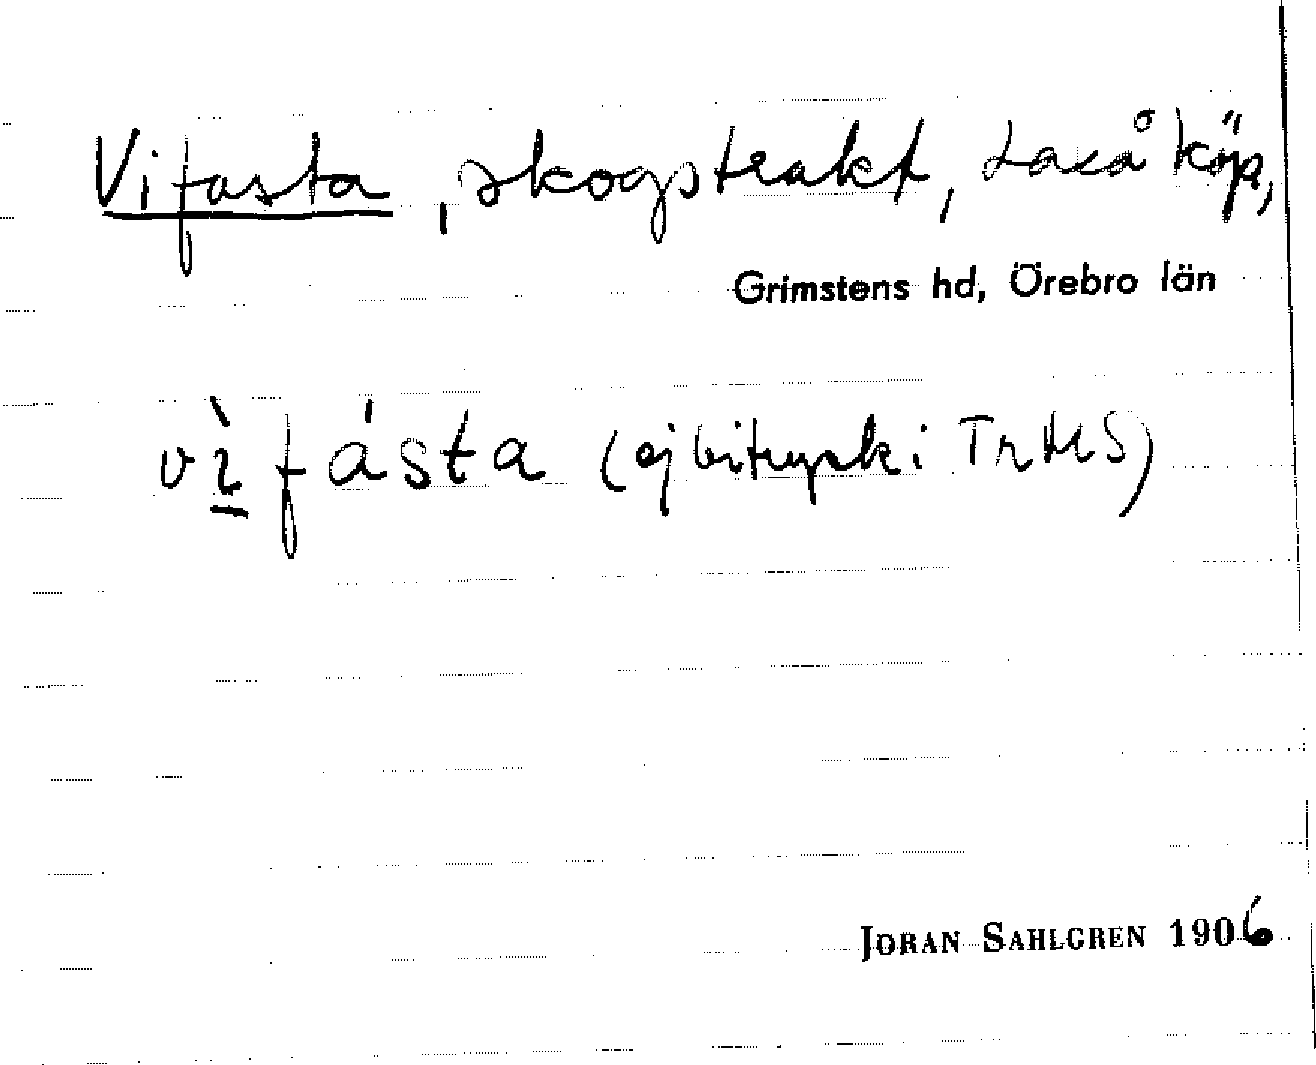 Vifasta, skogstrakt, Laxå köp,
Grimstens hd, Örebro län
vì̱fásta (ej bitryck i TrMS)
JÖRAN SAHLGREN 1906